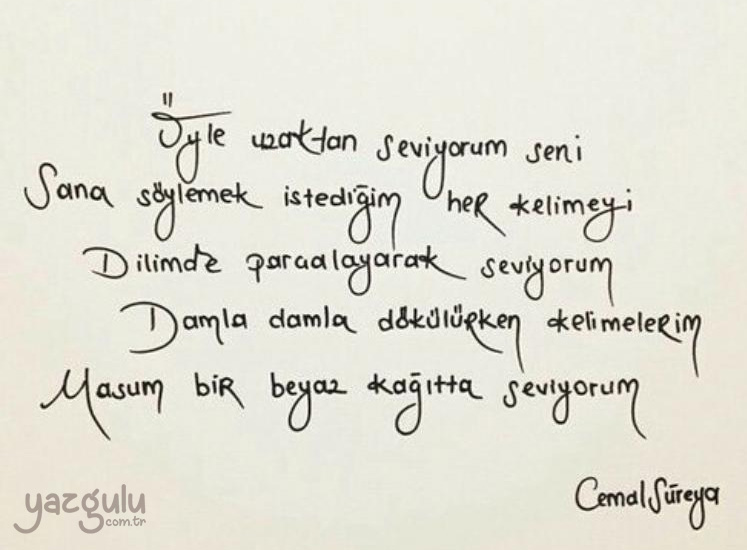 Öyle uzaktan seviyorum seni
Sana söylemek istediğim her kelimeyi
Dilimde parçalayarak seviyorum
Damla damla dökülürken kelimelerim
Masum bir beyaz kağıtta seviyorum
Cemal Süreya
yazgulu
com.tr